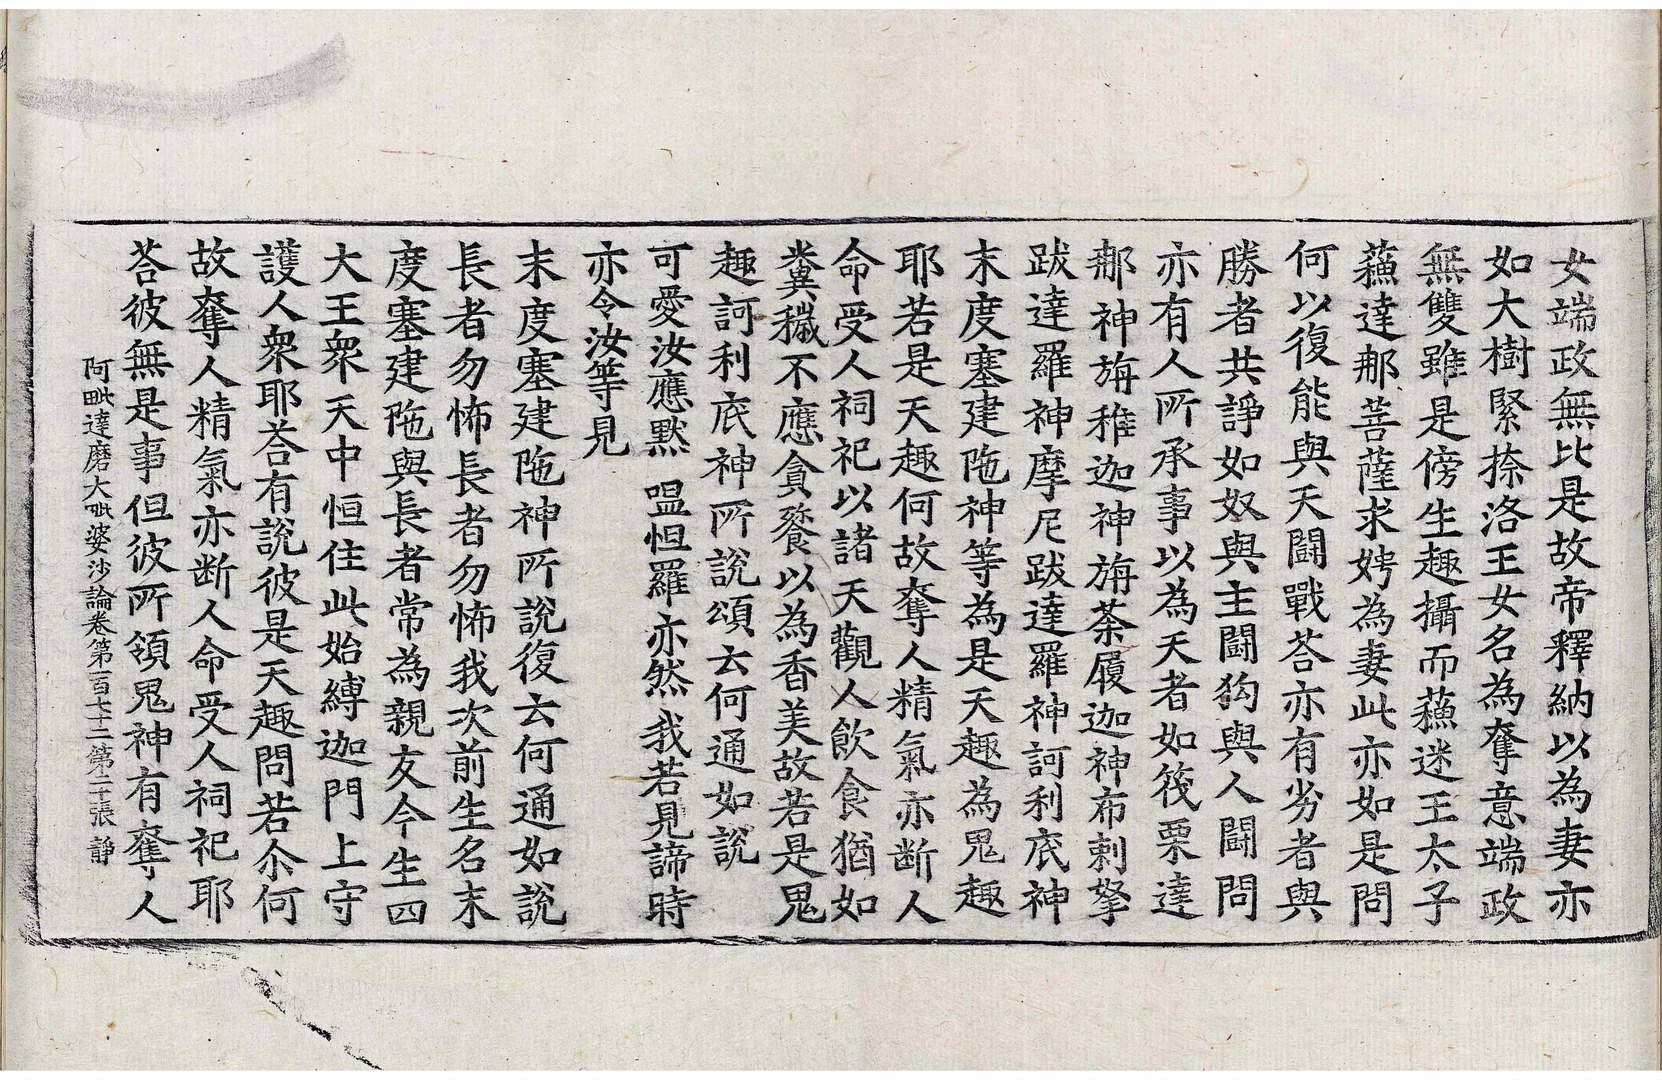 女端政無比是故帝釋納以為妻亦
如大樹緊捺洛王女名為奪意端政
無雙雖是傍生趣攝而蘓迷王太子
蘓達那菩薩求娉為妻此亦如是問
何以復能與天鬪戰荅亦有劣者與
勝者共諍如奴與主鬪狗與人鬪問
亦有人所承事以為天者如筏栗達
那神旃稚迦神旃荼履迦神布剌拏
跋達羅神摩尼跋達羅神訶利底神
末度塞建陁神等為是天趣為鬼趣
耶若是天趣何故奪人精氣亦断人
命受人祠祀以諸天觀人飲食猶如
糞穢不應貪飱以為香美故若是鬼
趣訶利底神所說頌云何通如說
可愛汝應默 嗢怛羅亦然 我若見諦時
亦令汝等見
末度塞建陁神所說復云何通如說
長者勿怖長者勿怖我次前生名末
度塞建陁與長者常為親友今生四
大王衆天中恒住此始縛迦門上守
護人衆耶荅有說彼是天趣問若尒何
故奪人精氣亦断人命受人祠祀耶
荅彼無是事但彼所領鬼神有奪人
阿毗達磨大毗婆沙論卷第一百七十二 第二十張 靜